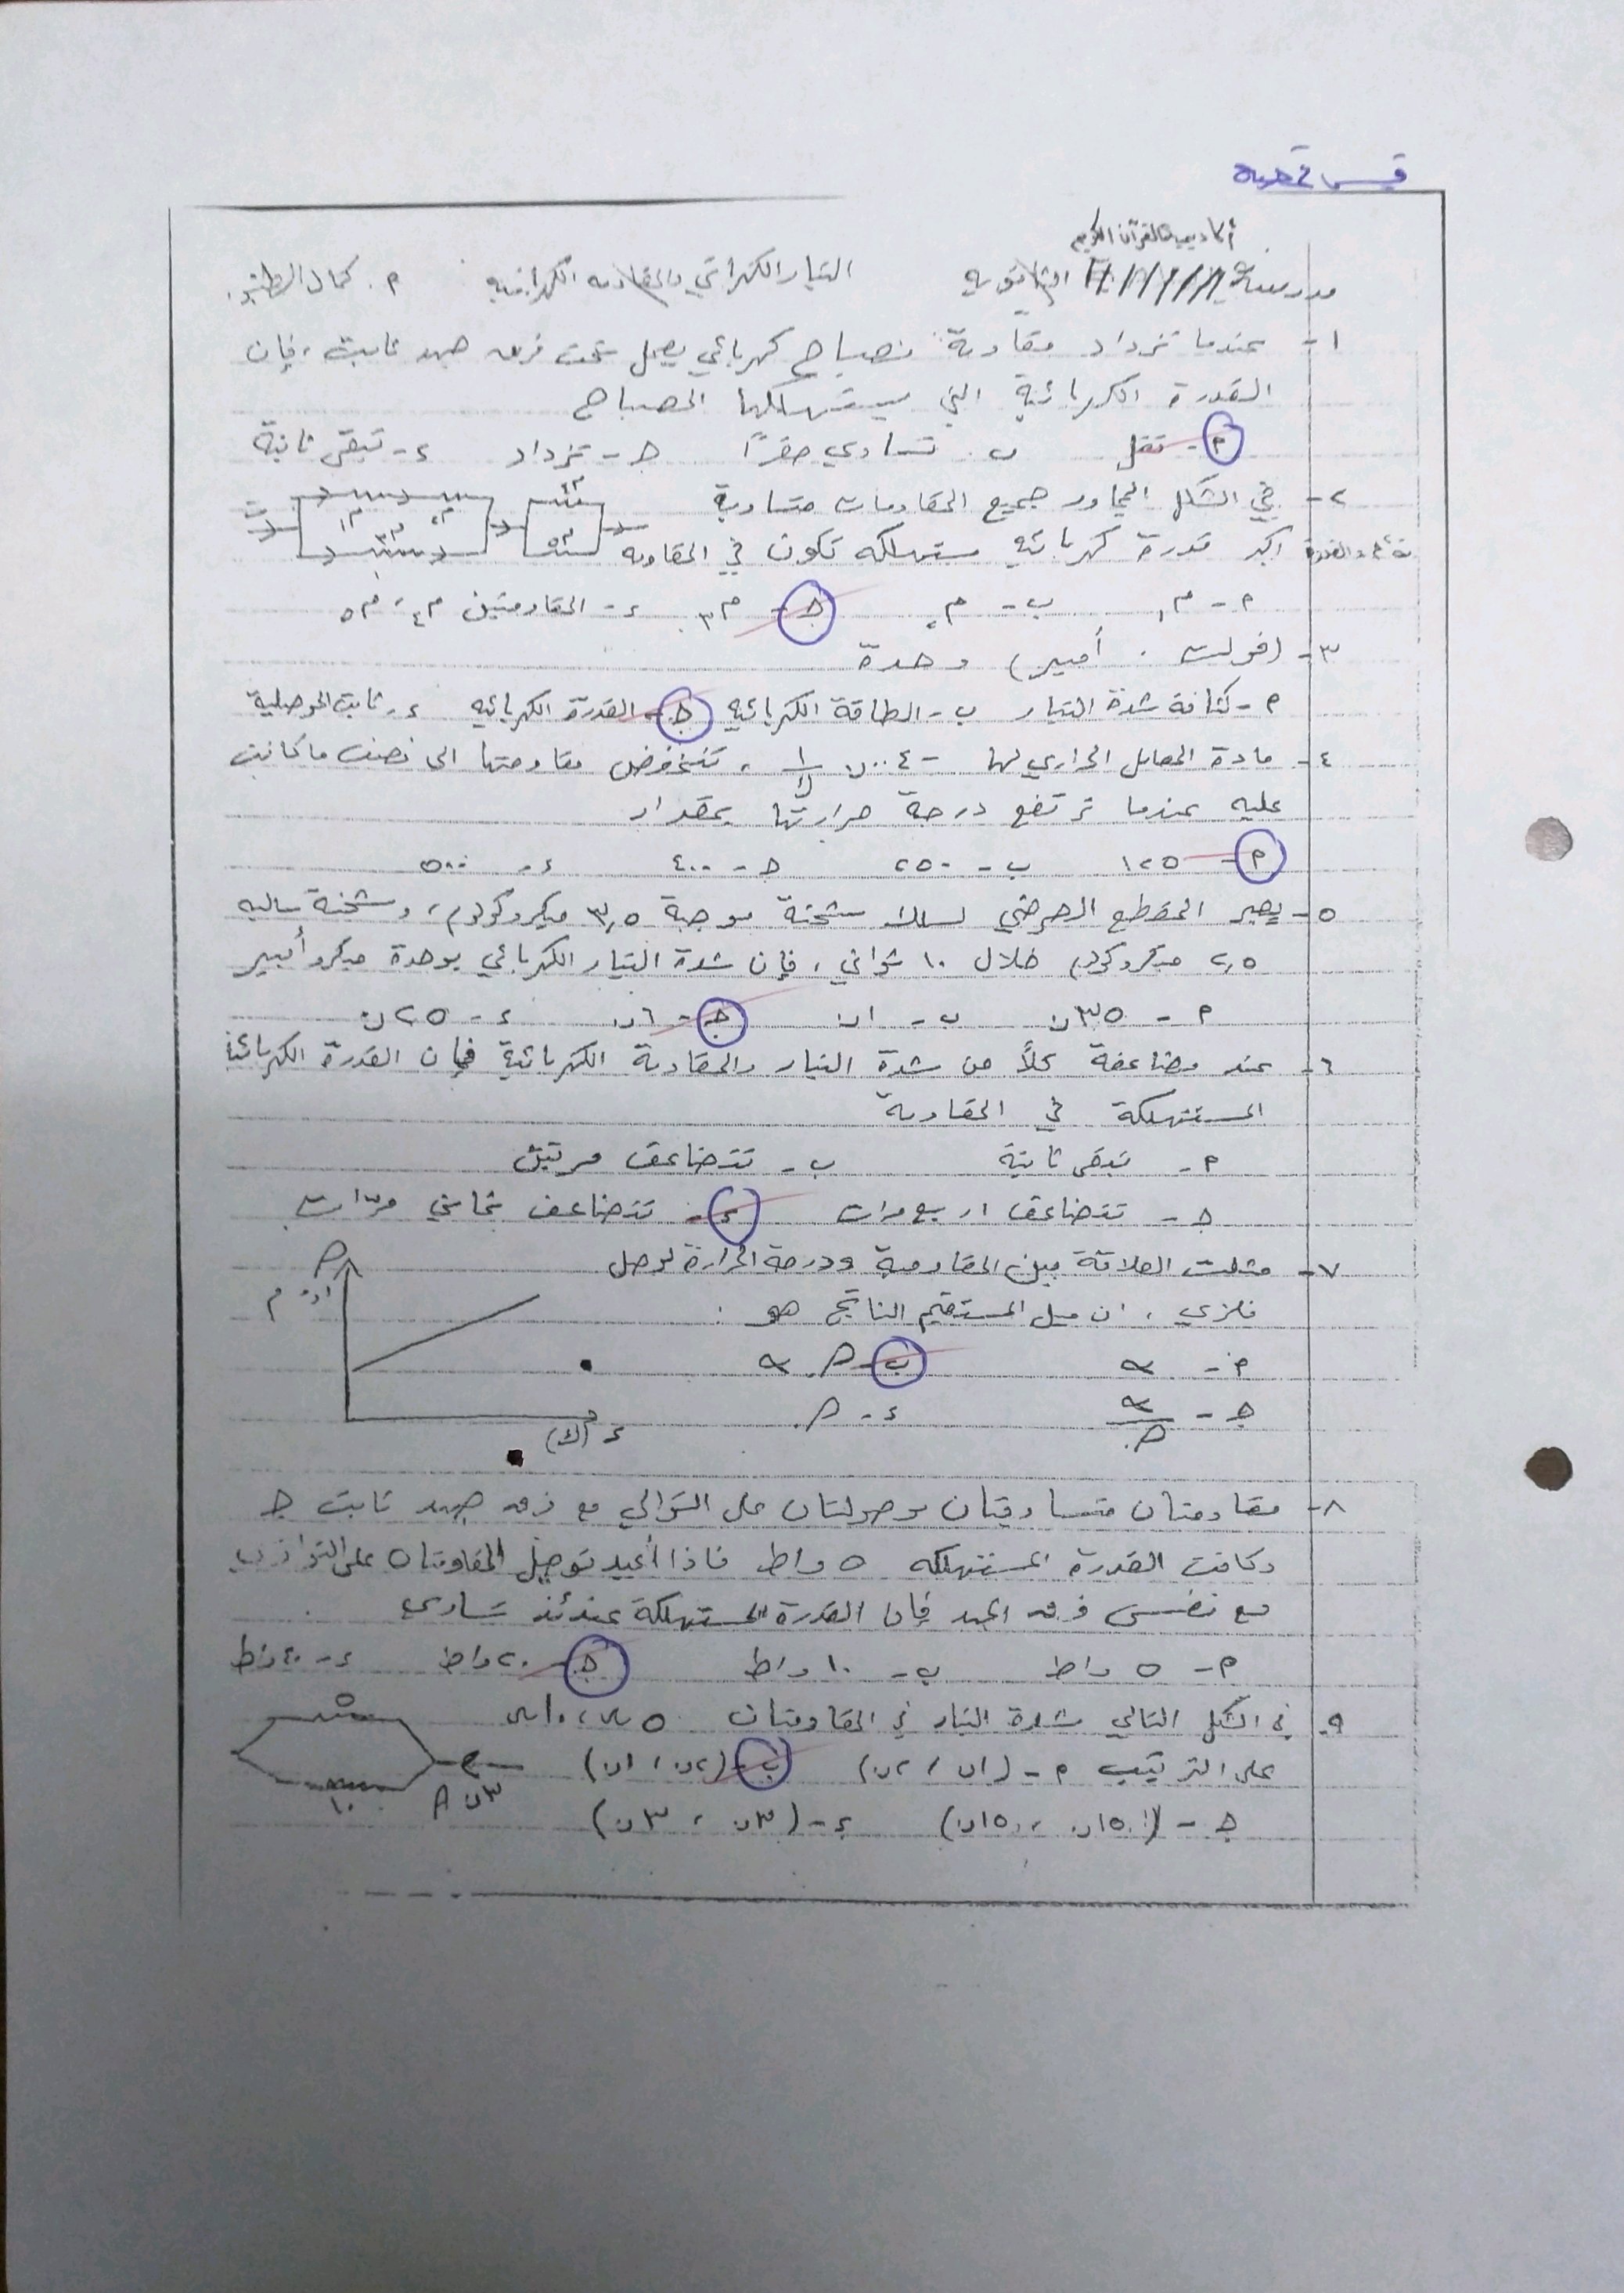 أكاديمية القرآن الكريم
مدرسة الثانوية التيار الكهربائي والمقاومه الكهربائيه م. كمال
١- عندما تزداد مقاومة مصباح كهربائي يعمل تحت فرق جهد ثابت ، فإن
القدرة الكهربائية التي يستهلكها المصباح
أ- تقل ب- تساوي صفرًا جـ- تزداد د- تبقى ثابتة
٢- في الشكل المجاور جميع المقاومات متساوية
اكبر قدرة كهربائيه مستهلكه تكون في المقاومه
أ- م١ ب- م٢ جـ- م٣ د- المقاومتين م٤ ، م٥
٣- (فولت . أمبير) وحدة
أ- كثافة شدة التيار ب- الطاقة الكهربائيه جـ- القدرة الكهربائيه د- ثابت الموصلية
٤- مادة المعامل الحراري لها - ٠٫٠٠٤ ١/ك ، تنخفض مقاومتها الى نصف ما كانت
عليه عندما ترتفع درجة حرارتها بمقدار
أ- ١٢٥ ب- ٢٥٠ جـ- ٤٠٠ د- ٥٠٠
٥- يعبر المقطع العرضي لسلك شحنة موجبة ٣٫٥ ميكروكولوم ، وشحنة سالبه
٢٫٥ ميكروكولوم خلال ١٠ ثواني ، فإن شدة التيار الكهربائي بوحدة ميكروأمبير
أ- ٠٫٣٥ ب- ٠٫١ جـ- ٠٫٦ د- ٠٫٢٥
٦- عند مضاعفة كلاً من شدة التيار والمقاومة الكهربائية فإن القدرة الكهربائية
المستهلكة في المقاومة
أ- تبقى ثابتة ب- تتضاعف مرتين
جـ- تتضاعف اربع مرات د- تتضاعف ثماني مرات
٧- مثلت العلاقة بين المقاومية ودرجة الحرارة لموصل
فلزي ، ان ميل المستقيم الناتج هو :
أ- α ب- ρ. α
جـ- α/ρ. د- ρ.
د (ك)
٨- مقاومتان متساويتان موصولتان على التوالي مع فرق جهد ثابت جـ
وكانت القدرة المستهلكه ٥ واط فاذا أعيد توصيل المقاومتان على التوازي
مع نفس فرق الجهد فإن القدرة المستهلكة عندئذ تساوي
أ- ٥ واط ب- ١٠ واط جـ- ٢٠ واط د- ٤٠ واط
٩- في الشكل التالي شدة التيار في المقاومتان ٥ Ω ، ١٠ Ω
على الترتيب أ- (٠٫١ ، ٠٫٢) ب- (٠٫٢ ، ٠٫١)
جـ- (٠٫١٥ ، ٠٫١٥) د- (٠٫٣ ، ٠٫٣)
٥
١٠
٠٫٣ A